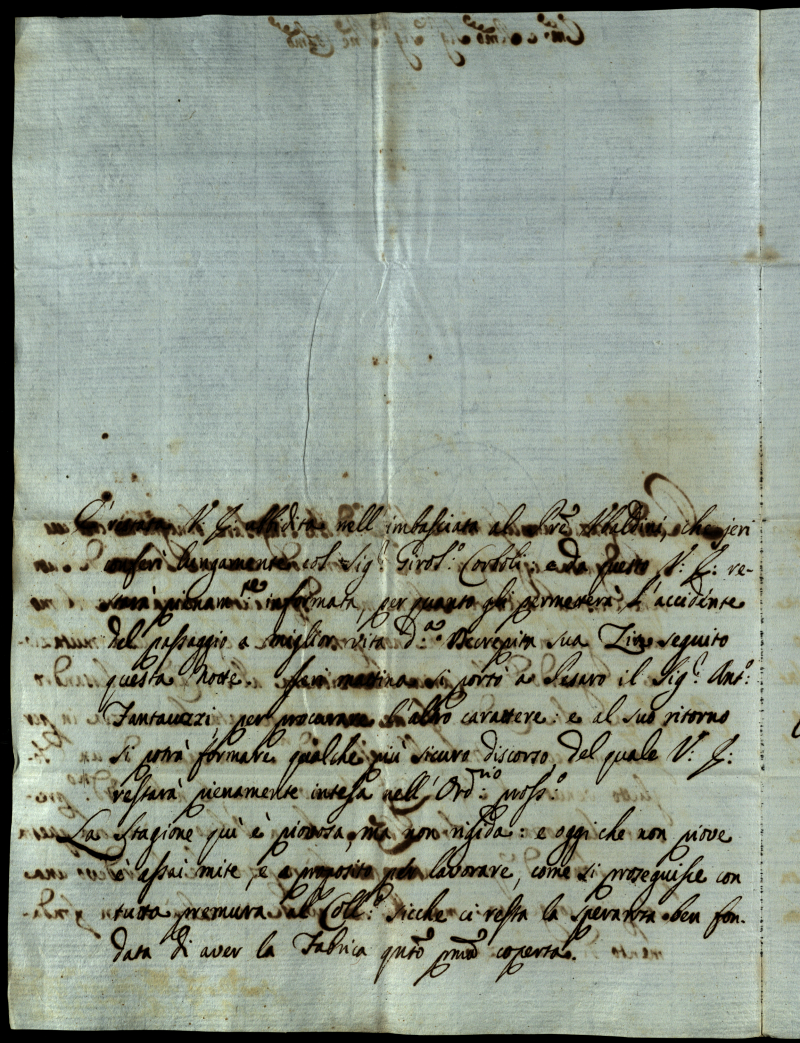 V: S: ubbidita nell'imbasciata al Pre Ubaldini, che jeri
conferì lungamente col Sig:r Girol:o Corboli: e da questo V: S: re-
starà pienam:te informata, per quanto gli permetterà l'accidente
del passaggio a miglior vita d:a decrepita sua Zia seguito
questa notte. Jeri mattina si portò a Pesaro il Sig:r Ant:o
Fantauzzi, per procurare l'altro carattere: e al suo ritorno
si potrà formare qualche più sicuro discorso, del quale V: S:
restarà pienamente intesa nell'Ord:rio pross:o
La Stagione quì è piovosa, ma non rigida: e oggi che non piove
è assai mite, e a proposito per lavorare, come si proseguisce con
tutta premura al Coll:o sicche ci resta la speranza ben fon-
data di aver la Fabrica q'nto p'ma coperta.